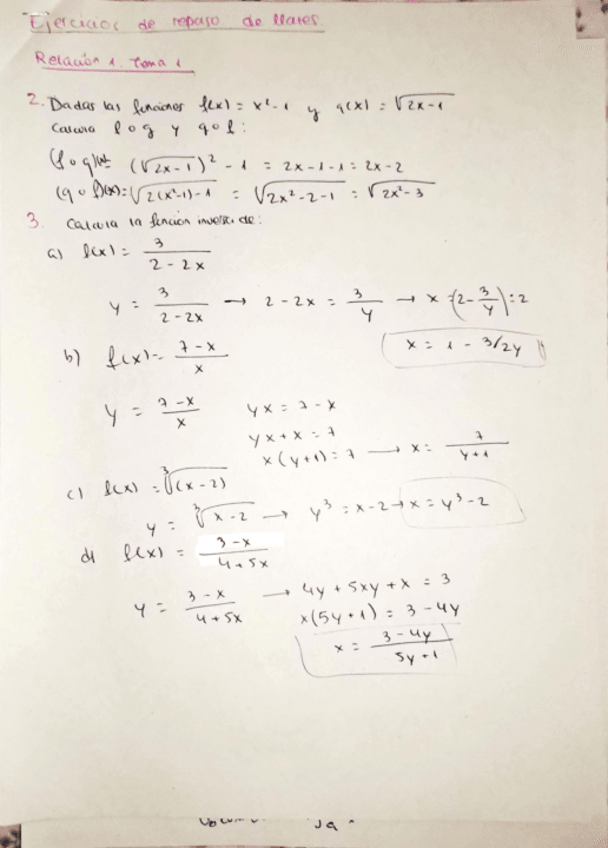 Ejercicios de repaso de
Relación 1. Tema 1
2. Dadas las funciones f(x) = x² - 1 y g(x) = √2x-1
Calcula f o g y g o f:
(√2x-1)² - 1 = 2x - 1 - 1 = 2x - 2
(g o f)(x) = √2(x²-1)-1 = √2x²-2-1 = √2x²-3
3. Calcula la función inversa de:
a) f(x) = 3/(2-2x)
y = 3/(2-2x) → 2-2x = 3/y → x = (2-3/y):2
x = 1 - 3/2y
b) f(x) = (7-x)/x
y = (7-x)/x yx = 7-x
yx+x = 7
x(y+1) = 7 → x = 7/(y+1)
c) f(x) = ∛(x-2)
y = ∛x-2 → y³ = x-2 → x = y³-2
d) f(x) = (3-x)/(4+5x)
y = (3-x)/(4+5x) → 4y + 5xy + x = 3
x(5y+1) = 3-4y
x = (3-4y)/(5y+1)